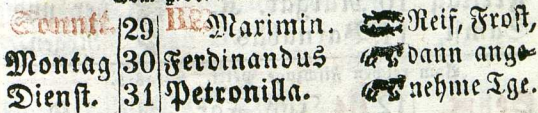 Sonnt. 29 Maximin. Reif, Frost,
Montag 30 Ferdinandus dann ange-
Dienst. 31 Petronilla. nehme Tge.